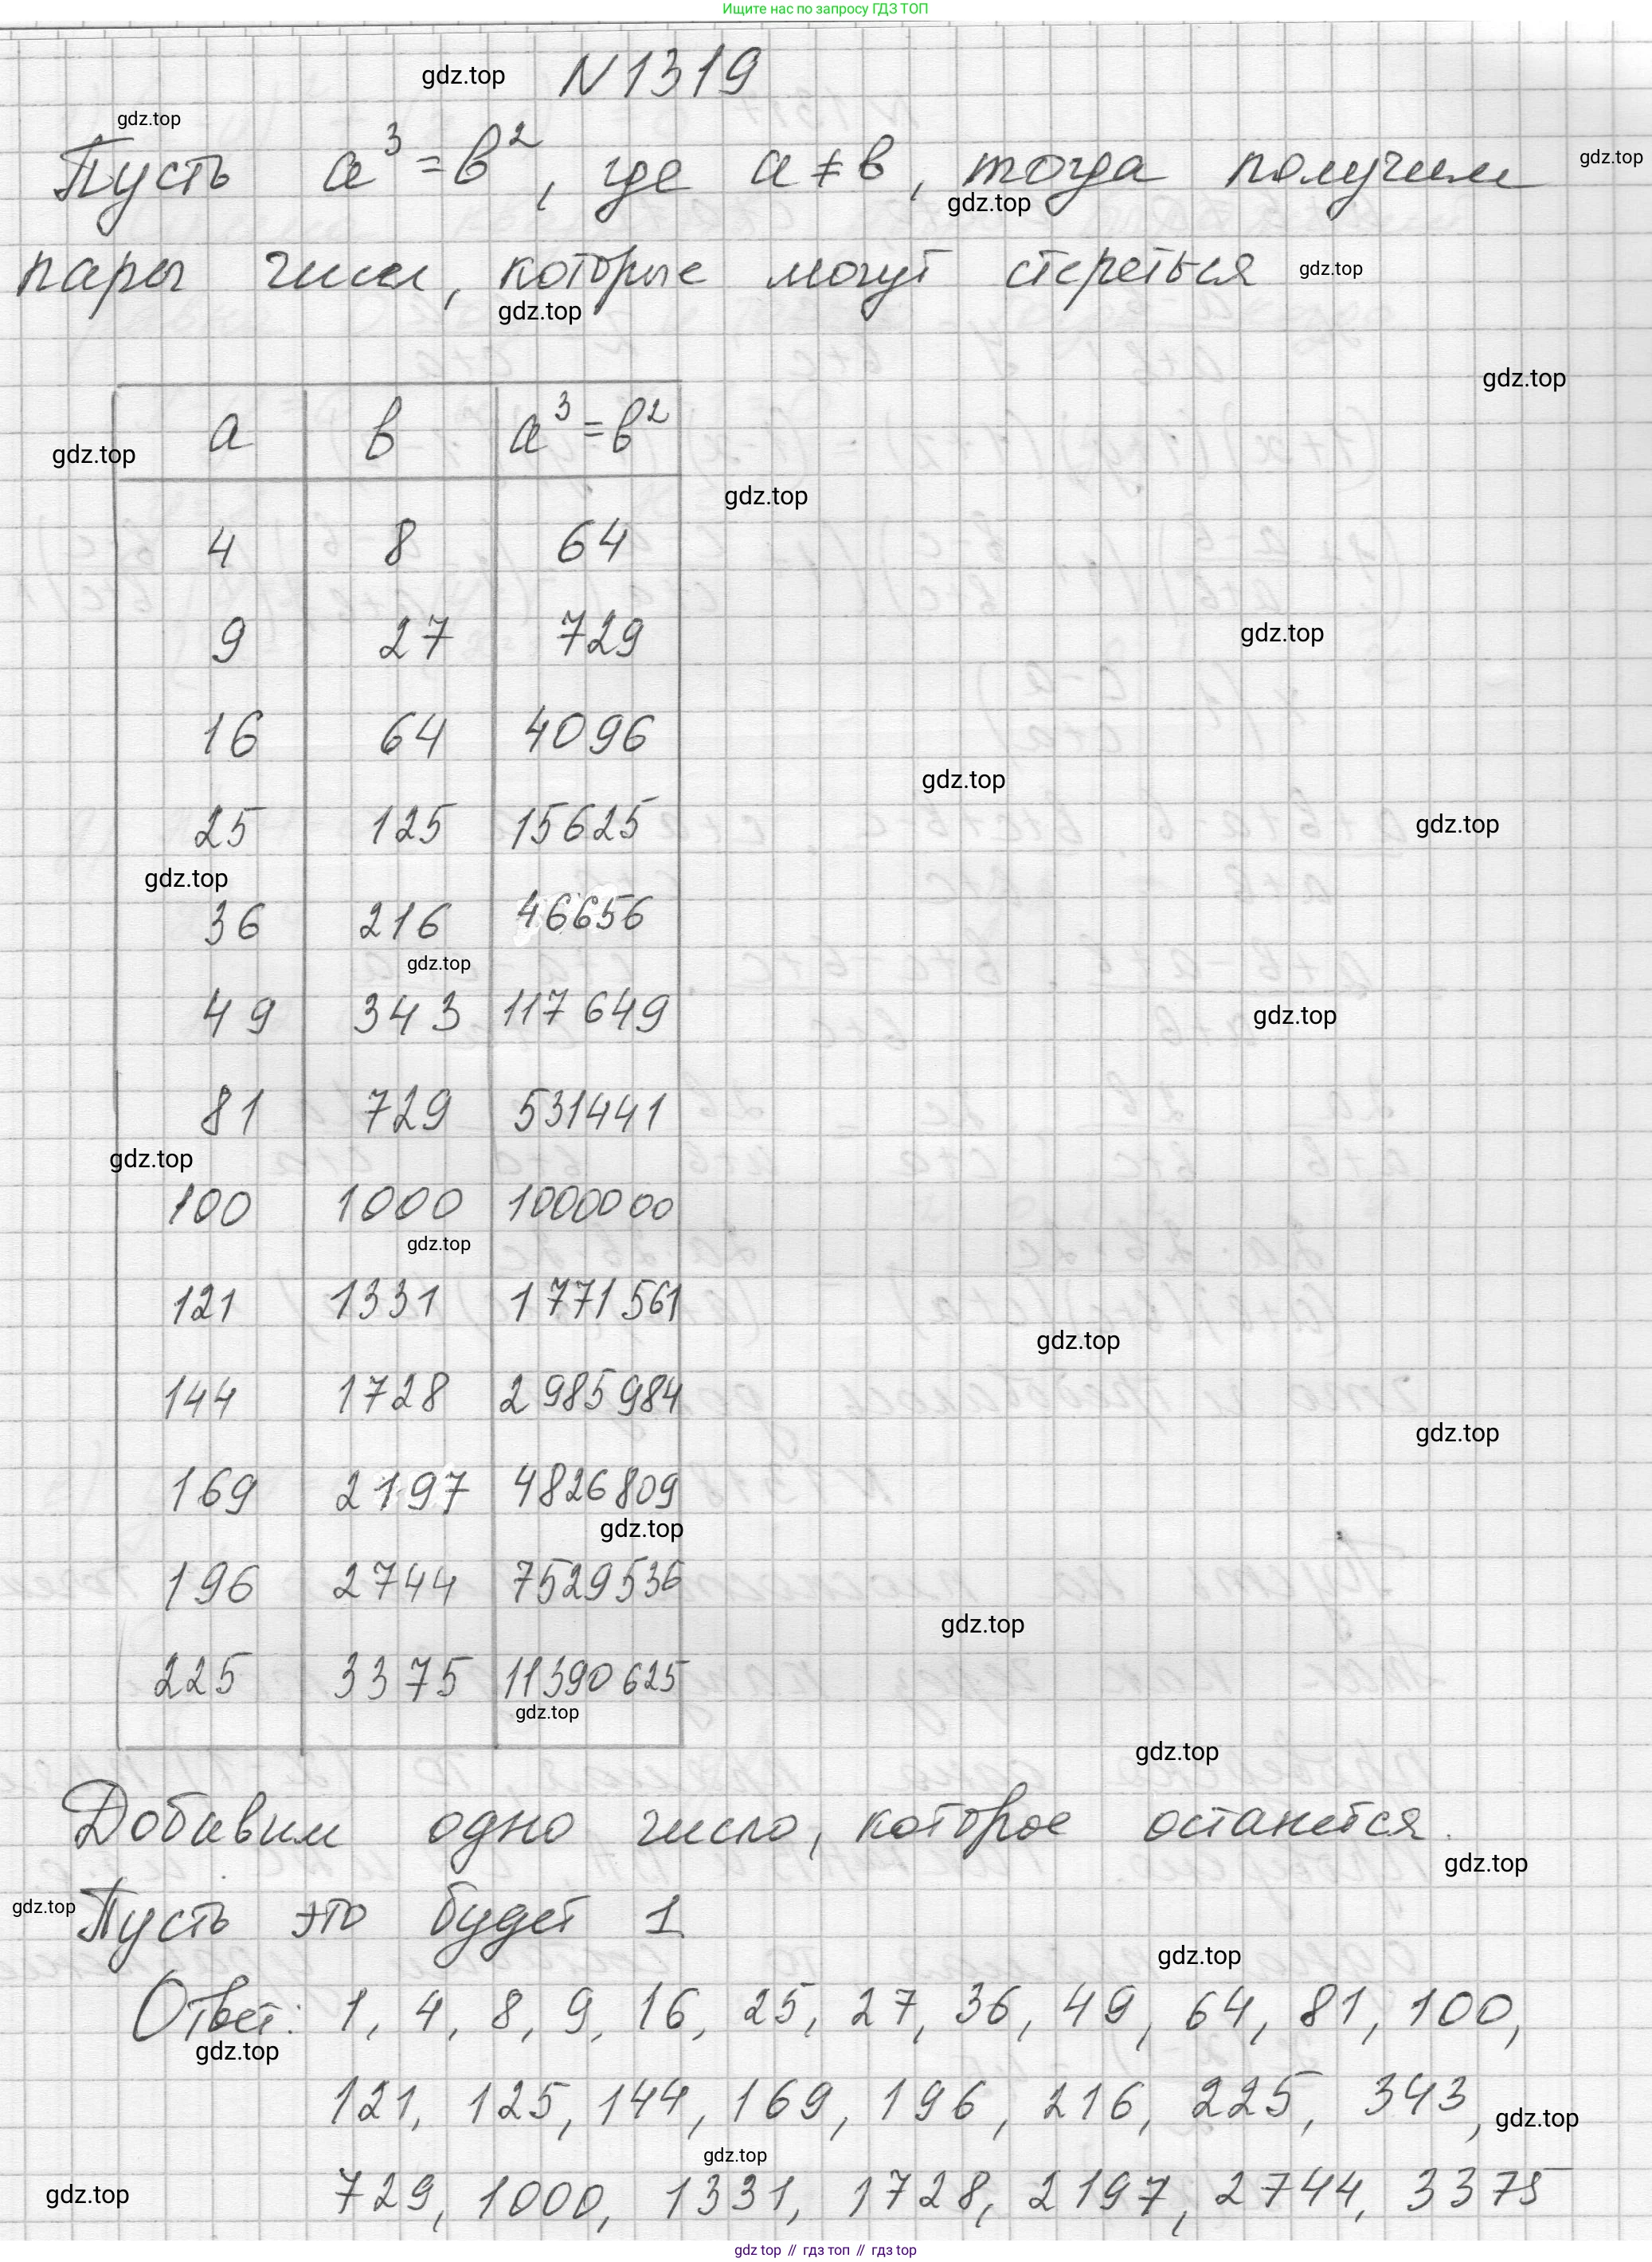 Ищите нас по запросу ГДЗ ТОП
gdz.top N 1319
gdz.top
Пусть a³=b², где a≠b, тогда получим gdz.top
gdz.top
пары чисел, которые могут стереться gdz.top
gdz.top
gdz.top
a b a³=b²
gdz.top
gdz.top
4 8 64
9 27 729
gdz.top
16 64 4096
gdz.top
25 125 15625
gdz.top
gdz.top
36 216 46656
gdz.top
49 343 117 649
gdz.top
81 729 531441
gdz.top
100 1000 1000000
gdz.top
121 1331 1 771 561
gdz.top
144 1728 2 985 984
gdz.top
169 2197 4826809
gdz.top
196 2744 7529536
gdz.top
225 3375 11390 625
gdz.top
gdz.top
Добавим одно число, которое останется.
gdz.top
gdz.top Пусть это будет 1
gdz.top
Ответ: 1, 4, 8, 9, 16, 25, 27, 36, 49, 64, 81, 100,
gdz.top
121, 125, 144, 169, 196, 216, 225, 343,
gdz.top
gdz.top
gdz.top 729, 1000, 1331, 1728, 2197, 2744, 3375
gdz top // гдз топ // гдз top